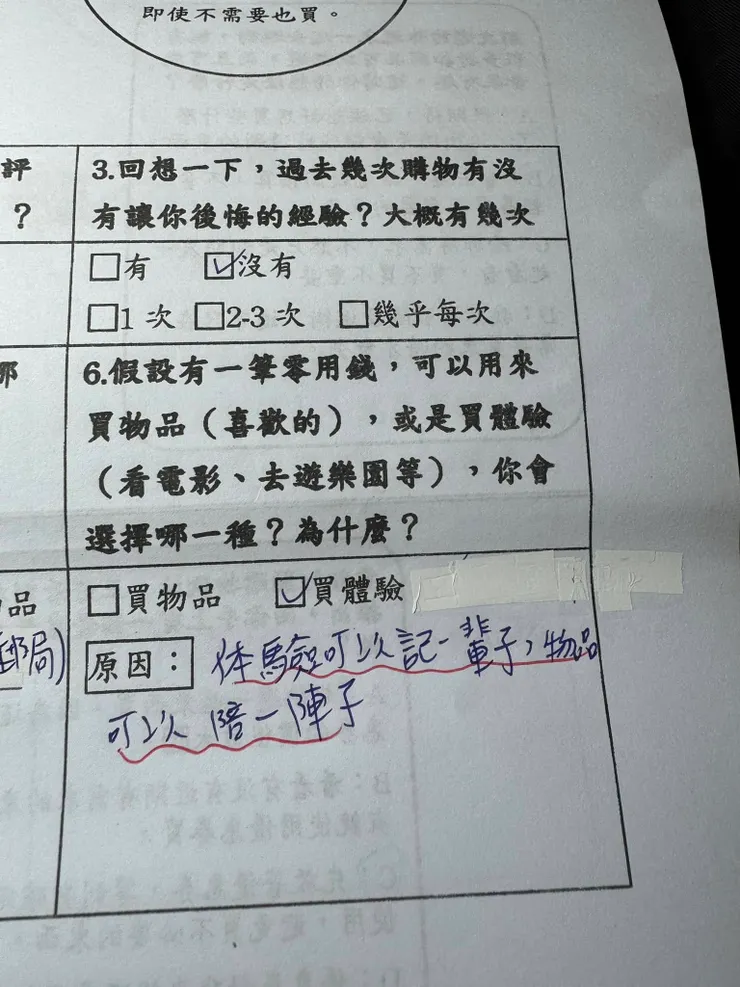 即使不需要也買。
評
?
3.回想一下，過去幾次購物有沒
有讓你後悔的經驗？大概有幾次
□有 ☑沒有
□1 次 □2-3 次 □幾乎每次
哪
6.假設有一筆零用錢，可以用來
買物品（喜歡的），或是買體驗
（看電影、去遊樂園等），你會
選擇哪一種？為什麼？
品
□買物品 ☑買體驗
郵局)
原因： 体驗可以記一輩子，物品
可以陪一陣子